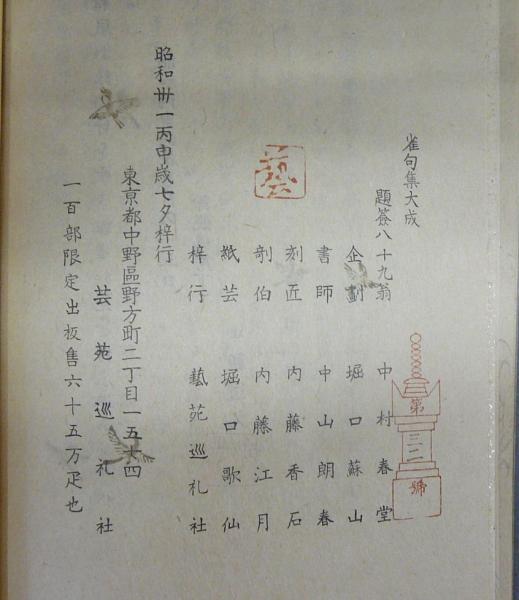 雀句集大成
題簽八十九翁　中村春堂
企劃　堀口蘇山
書師　中山朗春
刻匠　内藤香石
剞伯　内藤江月
紙芸　堀口歌仙
梓行　藝苑巡礼社
昭和卅一丙申歳七夕梓行
東京都中野區野方町二丁目一五六四
芸苑巡礼社
一百部限定出板售六十五万疋也
藝
第
三二
號